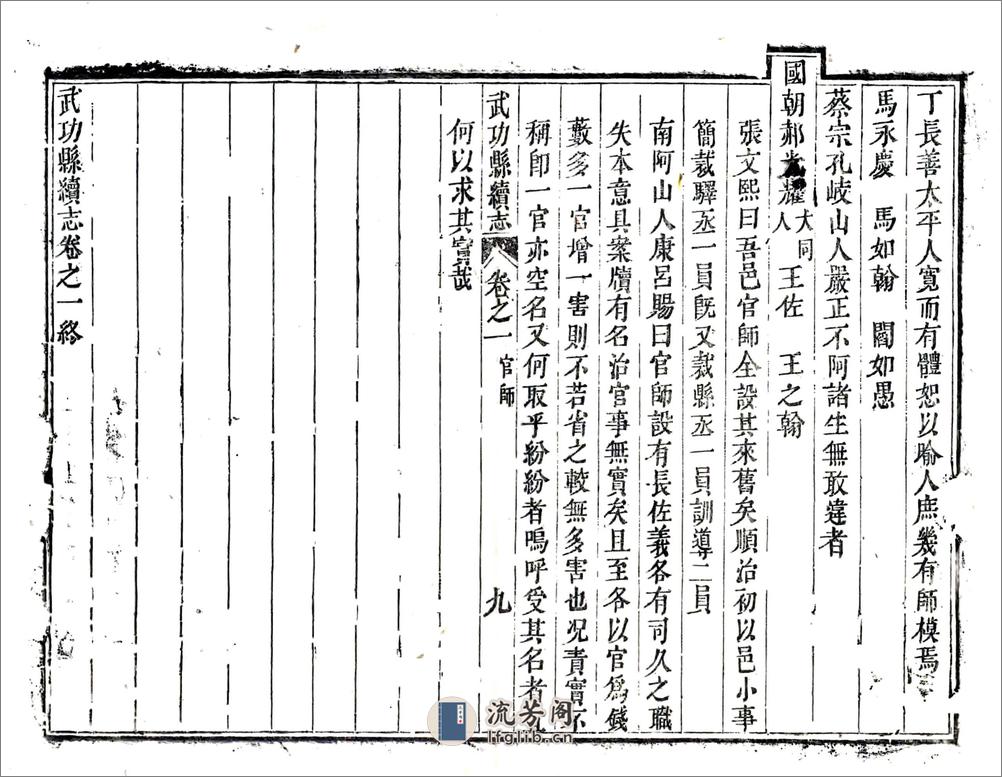 丁長善太平人寬而有體恕以喻人庶幾有師模焉
馬永慶　馬如翰　閻如愚
蔡宗孔岐山人嚴正不阿諸生無敢違者
國朝郝光耀大同人　王佐　王之翰
張文熙曰吾邑官師全設其來舊矣順治初以邑小事
簡裁驛丞一員旣又裁縣丞一員訓導二員
南阿山人康呂賜曰官師設有長佐義各有司久之職
失本意具案牘有名治官事無實矣且至各以官爲餞
藪多一官增一害則不若省之較無多害也况責實不
稱卽一官亦空名又何取乎紛紛者嗚呼受其名者
何以求其實哉
武功縣續志　卷之一　官師　九
武功縣續志卷之一終
流芳阁
lfglib.cn